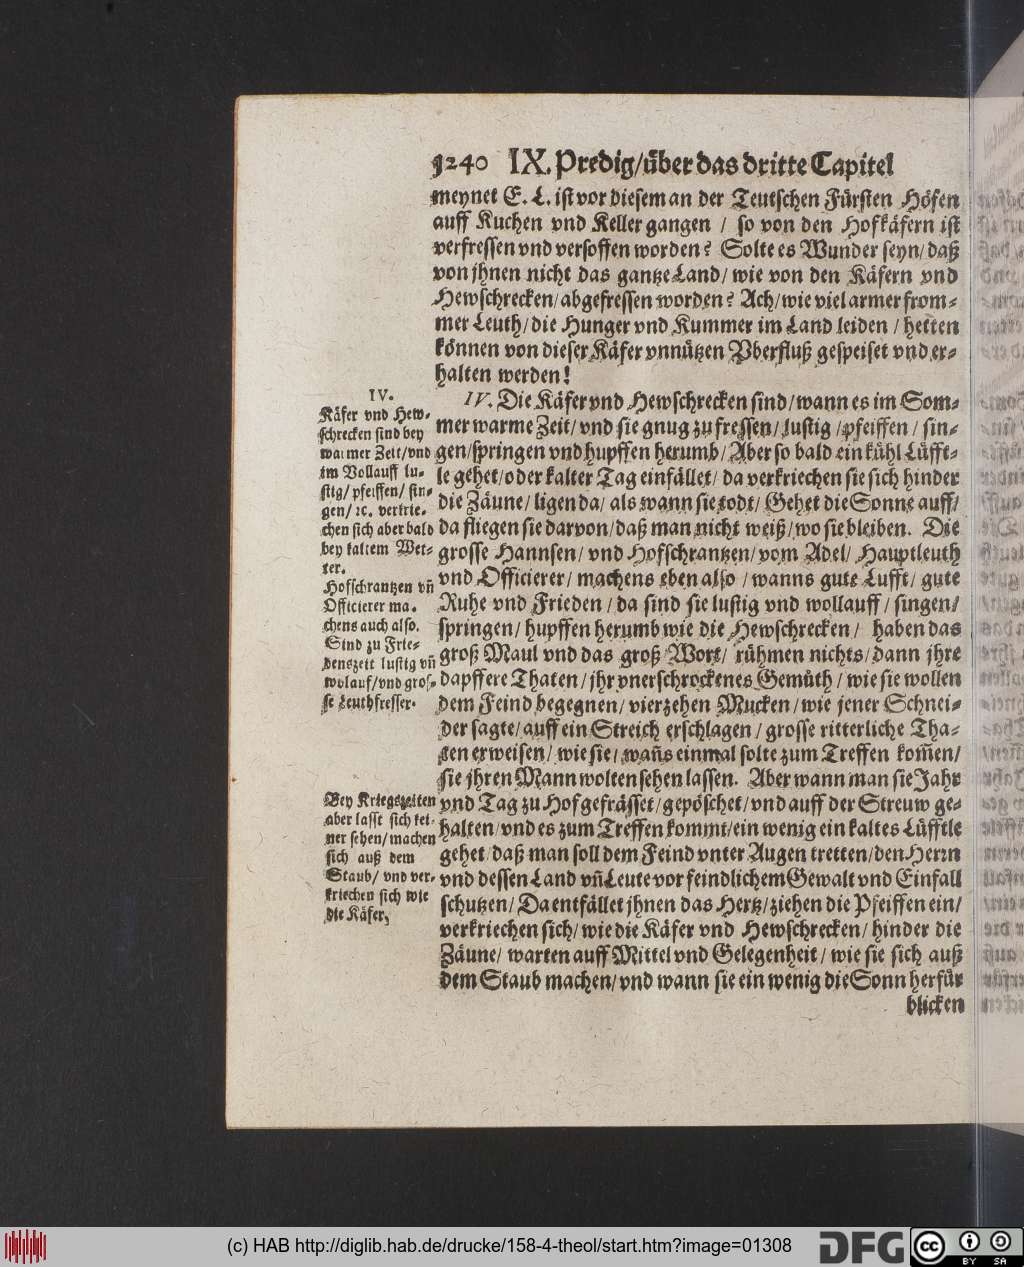 1240 IX. Predig/über das dritte Capitel
meynet E. L. ist vor diesem an der Teutschen Fürsten Höfen
auff Kuchen vnd Keller gangen / so von den Hofkäfern ist
verfressen vnd versoffen worden? Solte es Wunder seyn/daß
von jhnen nicht das gantze Land/wie von den Käfern vnd
Hewschrecken/abgefressen worden? Ach/wie viel armer from-
mer Leuth/die Hunger vnd Kummer im Land leiden / hetten
können von dieser Käfer vnnützen Vberfluß gespeiset vnd er-
halten werden!
IV. Die Käfer vnd Hewschrecken sind/wann es im Som-
mer warme Zeit/vnd sie gnug zu fressen/lustig/pfeiffen / sin-
gen/springen vnd hupffen herumb/Aber so bald ein kühl Lüfft-
le gehet/oder kalter Tag einfället/da verkriechen sie sich hinder
die Zäune/ligen da/als wann sie todt/Gehet die Sonne auff/
da fliegen sie darvon/daß man nicht weiß/wo sie bleiben. Die
grosse Hannsen/vnd Hofschrantzen/vom Adel/Hauptleuth
vnd Officierer/machens eben also / wanns gute Lufft/gute
Ruhe vnd Frieden/da sind sie lustig vnd wollauff/singen/
springen/hupffen herumb wie die Hewschrecken/ haben das
groß Maul vnd das groß Wort/ rühmen nichts/dann jhre
dapffere Thaten/jhr vnerschrockenes Gemüth/wie sie wollen
dem Feind begegnen/vierzehen Mucken/wie jener Schnei-
der sagte/auff ein Streich erschlagen/grosse ritterliche Tha-
ten erweisen/wie sie/wañs einmal solte zum Treffen kom̃en/
sie jhren Mann wolten sehen lassen. Aber wann man sie Jahr
vnd Tag zu Hof gefrässet/gepöschet/vnd auff der Streuw ge-
halten/vnd es zum Treffen kommt/ein wenig ein kaltes Lüfftle
gehet/daß man soll dem Feind vnter Augen tretten/den Herrn
vnd dessen Land vñ Leute vor feindlichem Gewalt vnd Einfall
schutzen/Da entfället jhnen das Hertz/ziehen die Pfeiffen ein/
verkriechen sich/wie die Käfer vnd Hewschrecken/hinder die
Zäune/warten auff Mittel vnd Gelegenheit/wie sie sich auß
dem Staub machen/vnd wann sie ein wenig die Sonn herfür
blicken
IV.
Käfer vnd Hew-
schrecken sind bey
warmer Zeit/vnd
im Vollauff lu-
stig/pfeiffen/sin-
gen/ꝛc. verkrie-
chen sich aber bald
bey kaltem Wet-
ter.
Hofschrantzen vñ
Officierer ma-
chens auch also.
Sind zu Frie-
denszeit lustig vñ
wolauf/vnd gros-
se Leuthfresser.
Bey Kriegszeiten
aber lasst sich kei-
ner sehen/machen
sich auß dem
Staub/vnd ver-
kriechen sich wie
die Käfer,
(c) HAB http://diglib.hab.de/drucke/158-4-theol/start.htm?image=01308
DFG
cc BY SA